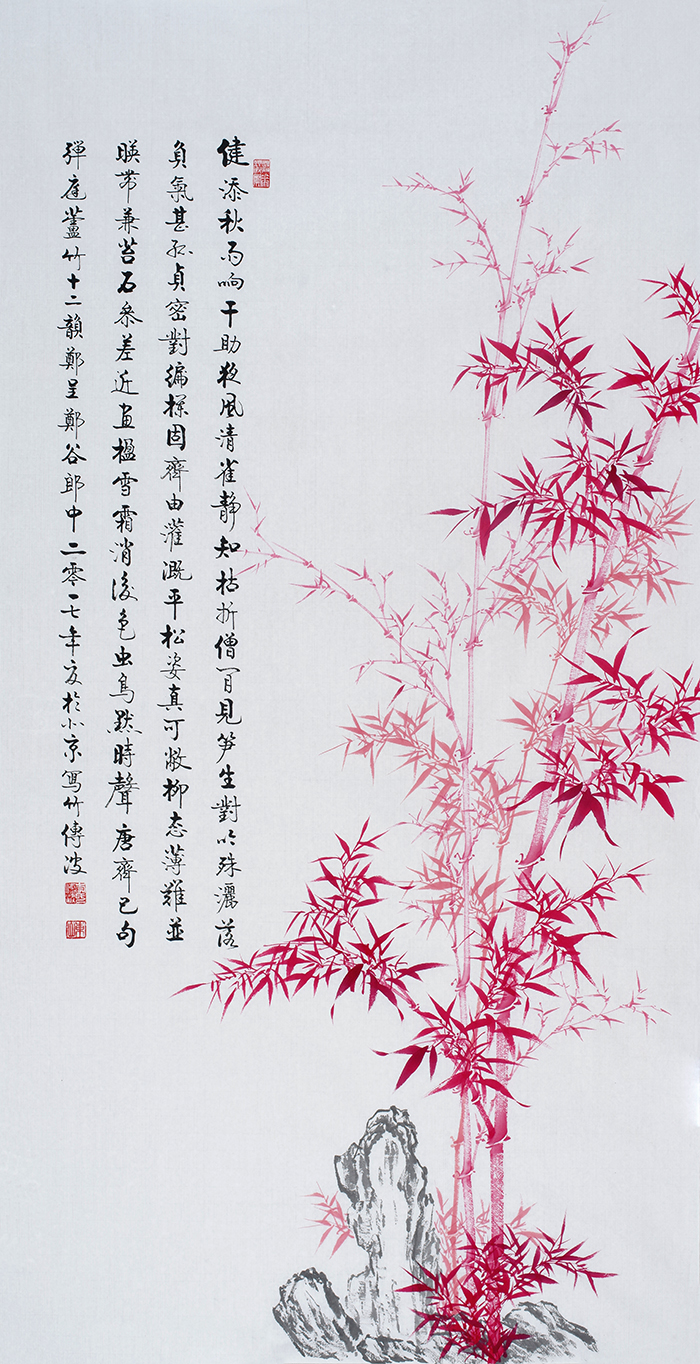 健添秋雨响干助夜风清雀静知枯折僧閒見笋生對吟殊灑落
負氣甚孤貞密對編固齊由灌溉平松姿真可敵柳态薄難並
暎带兼苔石叅差近画楹雪霜消後色虫鳥默時聲唐齊己句
彈庭蘆竹十二韻鄭呈鄭谷郎中二零一七年夏於北京寫竹傳波